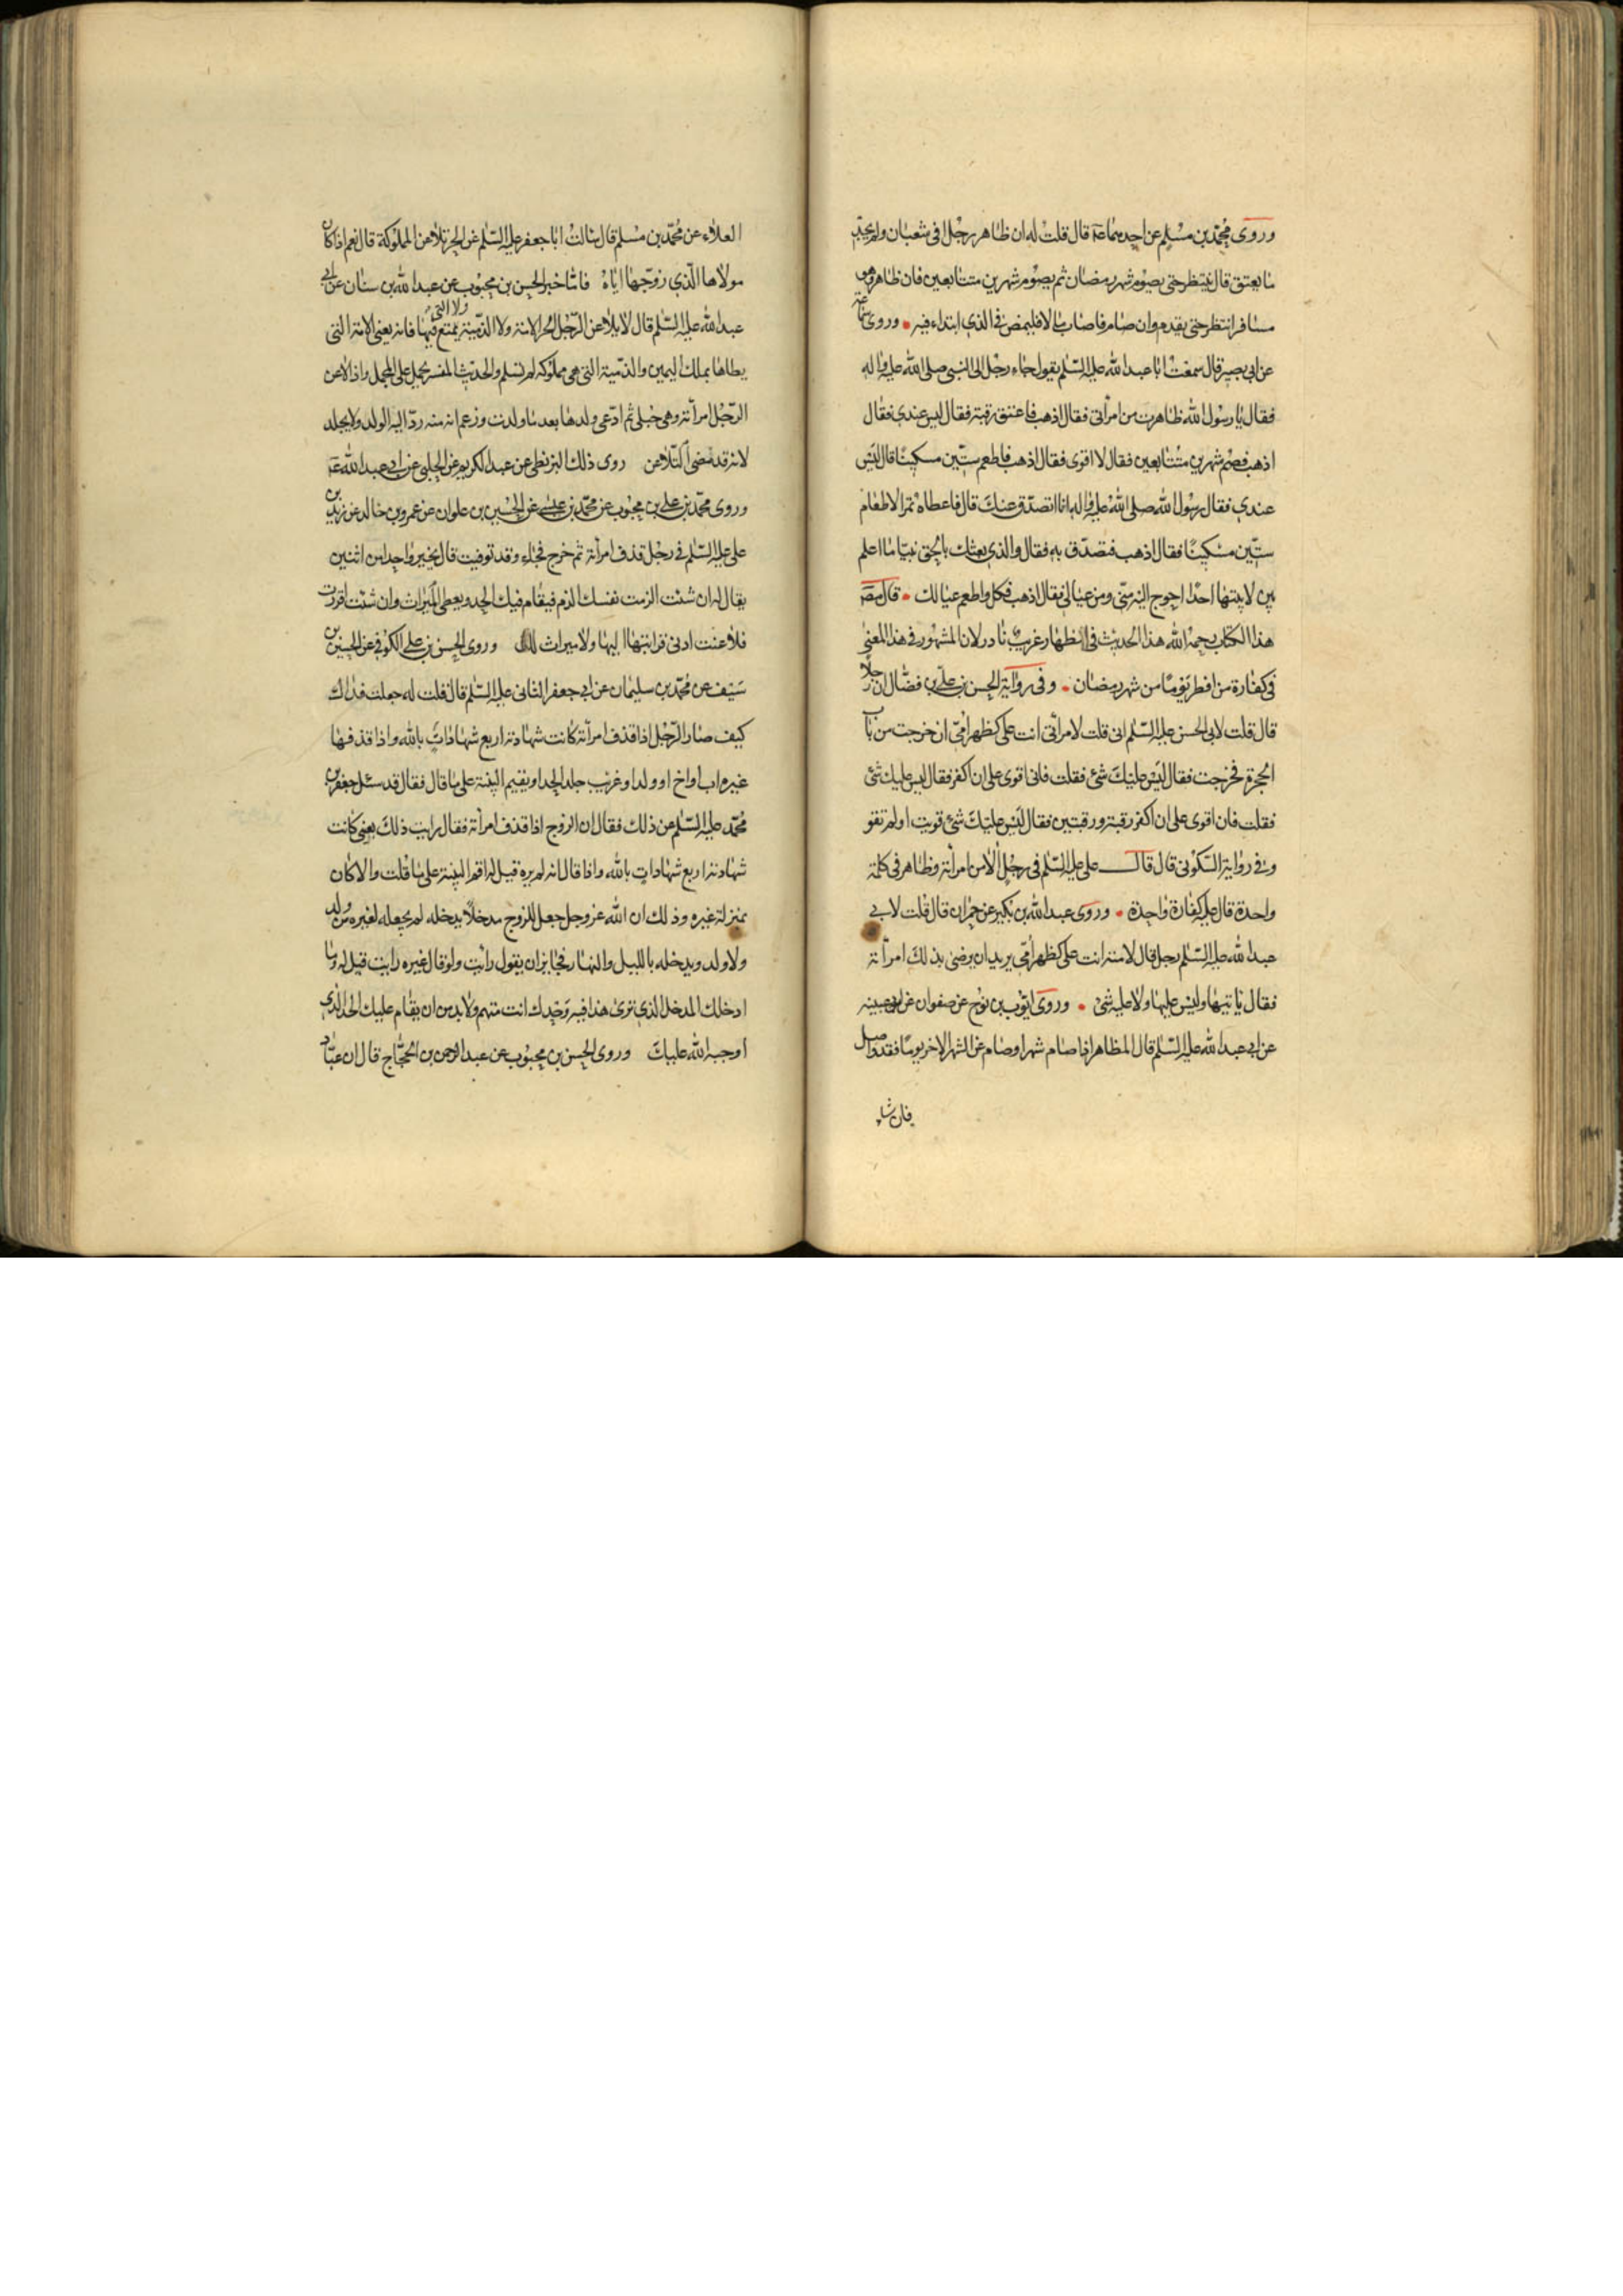 وروى محمد بن مسلم عن احدهما عة قال قلت له ان ظاهر رجل في شعبان ولم يجد
ما يعتق قال ينتظر حتى يصوم شهر رمضان ثم يصوم شهرين متتابعين فان ظاهر وهو
مسافر انتظر حتى يقدم وان صام فاصاب مالا فليمض في الذي ابتداء فيه وروى سماعة
عن ابي بصير قال سمعت ابا عبد الله عليه السلم يقول جاء رجل الى النبي صلى الله عليه واله
فقال يا رسول الله ظاهرت من امرأتي فقال اذهب فاعتق رقبة فقال ليس عندي فقال
اذهب فصم شهرين متتابعين فقال لا اقوى فقال اذهب فاطعم ستين مسكينا قال ليس
عندي فقال رسول الله صلى الله عليه واله انا اتصدق عنك قال فاعطاه تمرا لاطعام
ستين مسكينا فقال اذهب فتصدق به فقال والذي بعثك بالحق نبيا ما اعلم
بين لابتيها احدا احوج اليه مني ومن عيالي فقال اذهب فكل واطعم عيالك قال مص
هذا الكتاب رحمه الله هذا الحديث في الظهار غريب نادر لان المشهور في هذا المعنى
في كفارة من افطر يوما من شهر رمضان وفي رواية الحسن بن علي بن فضال ان رجلا
قال قلت لابي الحسن عليه السلم اني قلت لامرأتي انت علي كظهر امي ان خرجت من باب
الحجرة فخرجت فقال ليس عليك شئ فقلت فاني اقوى على ان اكفر فقال ليس عليك شئ
فقلت فان اقوى على ان اكفر رقبة ورقبتين فقال ليس عليك شئ قويت او لم تقو
وفي رواية السكوني قال قال علي عليه السلم في رجل الا من امرأته وظاهر في كلمة
واحدة قال عليه كفارة واحدة وروى عبد الله بن بكير عن حمران قال قلت لابي
عبد الله عليه السلم رجل قال لامته انت علي كظهر امي يريد ان يرضى بذلك امرأته
فقال ياتيها وليس عليها ولا عليه شئ وروى ايوب بن نوح عن صفوان عن ابي عيينه
عن ابي عبد الله عليه السلم قال المظاهر اذا صام شهرا وصام من الشهر الاخر يوما فقد واصل
فان شاء
العلاء عن محمد بن مسلم قال سالت ابا جعفر عليه السلم عن الحر يلاعن المملوكة قال نعم اذا كان
مولاها الذي زوجها اياه فاما خبر الحسن بن محبوب عن عبد الله بن سنان عن ابي
عبد الله عليه السلم قال لا يلاعن الرجل الحر الامة ولا الذمية ولا التي يتمتع فيها فانه يعني الامة التي
يطاها بملك اليمين والذمية التي هي مملوكه لم تسلم والحديث المفسر يحمل على المجمل واذا لاعن
الرجل امرأته وهي حبلى ثم ادعى ولدها بعد ما ولدت وزعم انه منه رد اليه الولد ولا يجلد
لانه قد مضى التلاعن روى ذلك البزنطي عن عبد الكريم عن الحلبي عن ابي عبد الله عة
وروى محمد بن علي بن محبوب عن محمد بن عيسى عن الحسين بن علوان عن عمرو بن خالد عن زيد بن
علي عليه السلم في رجل قذف امرأته ثم خرج فجاء وقد توفيت قال يخير واحد من اثنين
يقال له ان شئت الزمت نفسك الذم فيقام فيك الحد ويعطى الميراث وان شئت اقررت
فلاعنت ادنى قرابتها اليها ولا ميراث لك وروى الحسن بن علي الكوفي عن الحسين بن
سيف عن محمد بن سليمان عن ابي جعفر الثاني عليه السلم قال قلت له جعلت فداك
كيف صار الرجل اذا قذف امرأته كانت شهادته اربع شهادات بالله واذا قذفها
غيره اب او اخ او ولد او غريب جلد الحد او يقيم البينة على ما قال فقال قد سئل جعفر بن
محمد عليه السلم عن ذلك فقال ان الزوج اذا قذف امرأته فقال رايت ذلك بعيني كانت
شهادته اربع شهادات بالله واذا قال انه لم يره قيل له اقم البينة على ما قلت والا كان
بمنزلة غيره وذلك ان الله عز وجل جعل للزوج مدخلا يدخله لم يجعله لغيره من والد
ولا ولد ويدخله بالليل والنهار فجايز ان يقول رايت ولو قال غيره رايت قيل له وما
ادخلك المدخل الذي ترى هذا فيه وحدك انت متهم ولا بد من ان يقام عليك الحد الذي
اوجبه الله عليك وروى الحسن بن محبوب عن عبد الرحمن بن الحجاج قال ان عباد